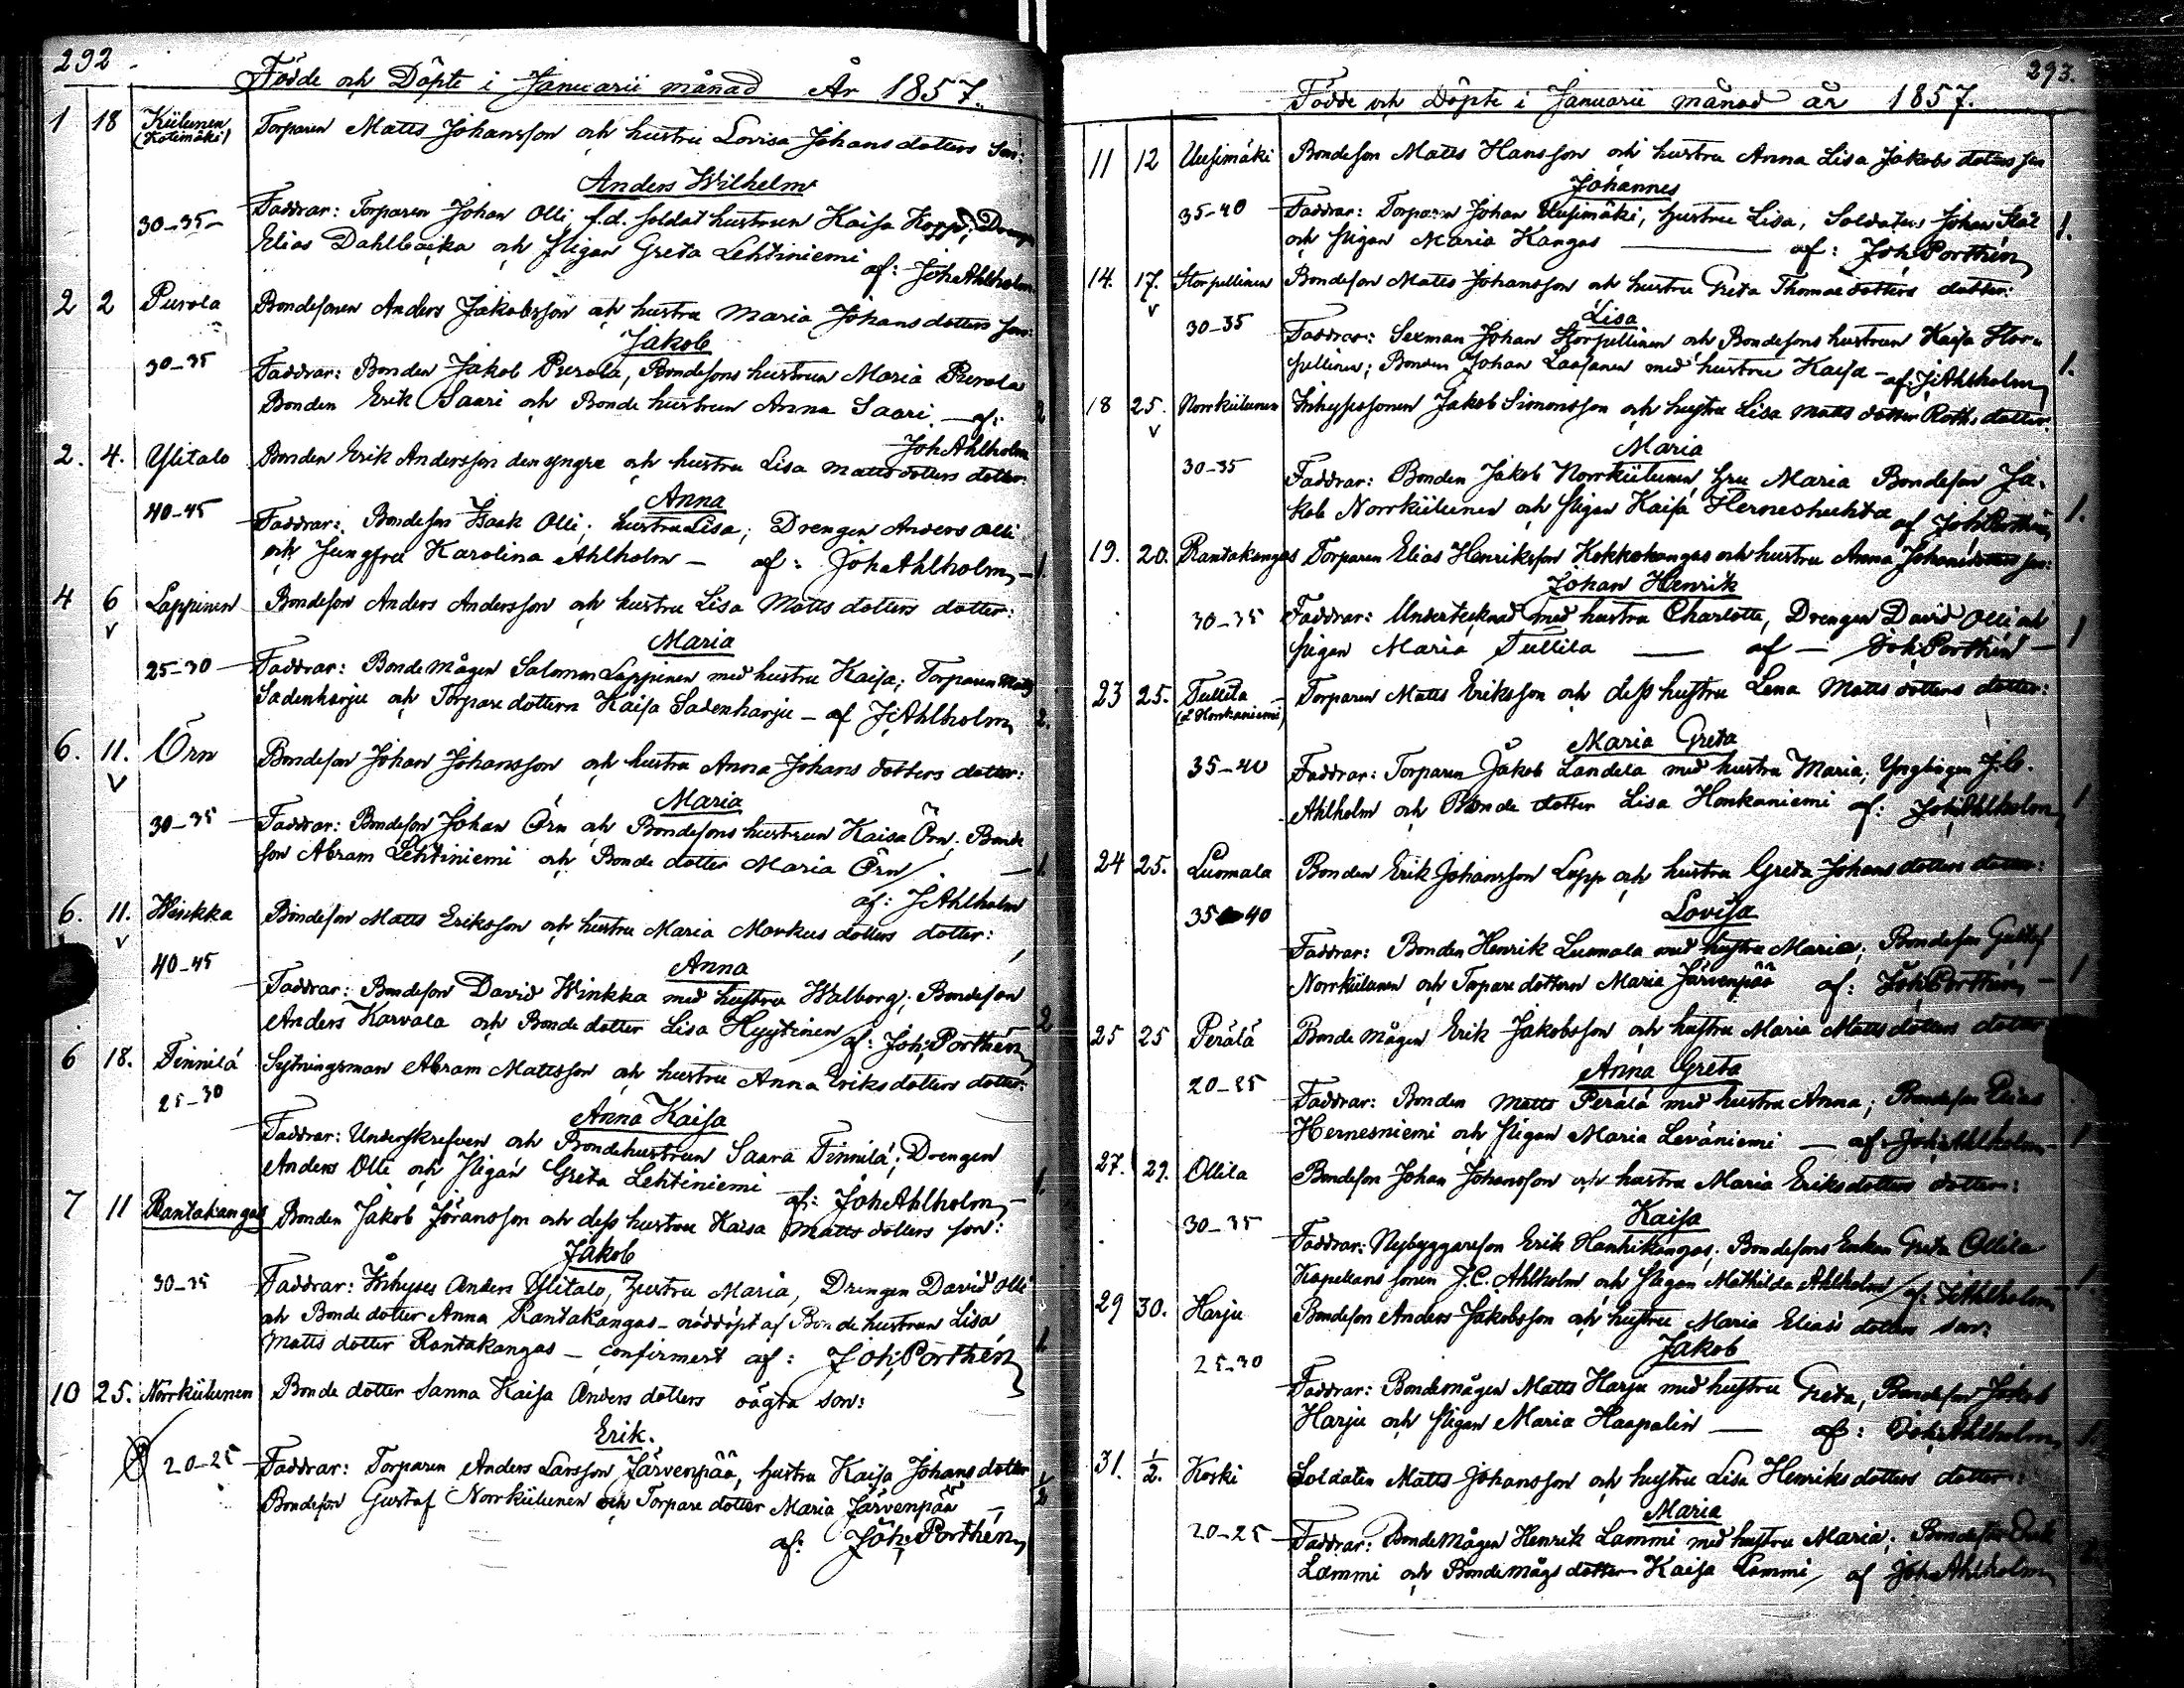 292
Födde och Döpte i Januarii månad År 1857.
1 18 Kiilunen Torparen Matts Johansson och hustru Lovisa Johans dotters son:
(Kotimäki)
Anders Wilhelm
30-35 Faddrar: Torparen Johan Olli, f.d. soldat hustrun Kaisa Kopp; Dreng
Elias Dahlbacka och Pigan Greta Lehtiniemi
af: Joh Ahlholm
2 2 Purola Bondesonen Anders Jakobsson och hustru Maria Johans dotters son:
Jakob
30-35 Faddrar: Bonden Jakob Purola, Bondesons hustrun Maria Purola
Bonden Erik Saari och Bonde hustrun Anna Saari. — af: 2
Joh Ahlholm
2. 4. Ylitalo Bonden Erik Andersson den yngre och hustru Lisa Matts dotters dotter:
Anna
40-45 Faddrar: Bondeson Isaak Olli, hustru Lisa; Drengen Anders Olli
och Jungfru Karolina Ahlholm — af: Joh Ahlholm — 1.
4 6 Lappinen Bondeson Anders Andersson och hustru Lisa Matts dotters dotter:
v
Maria
25-30 Faddrar: Bonde mågen Salomon Lappinen med hustru Kaisa; Torparen Matts
Sadenharju och Torpare dottern Kaisa Sadenharju — af J Ahlholm 2.
6. 11. Örn Bondeson Johan Johansson och hustru Anna Johans dotters dotter:
v
Maria
30-35 Faddrar: Bondeson Johan Örn och Bondesons hustrun Kaisa Örn; Bonde
son Abram Lehtiniemi och Bonde dotter Maria Örn. — 1.
af: J Ahlholm
6. 11. Winkka Bondeson Matts Eriksson och hustru Maria Markus dotters dotter:
v
Anna
40-45 Faddrar: Bondeson David Winkka med hustru Walborg; Bondeson
Anders Karvala och Bonde dotter Lisa Hyytinen af: Joh: Porthén 2
6 18. Finnilä Sytningsman Abram Mattsson och hustru Anna Eriks dotters dotter:
25-30
Anna Kaisa
Faddrar: Underskrefven och Bondehustrun Saara Finnilä; Drengen
Anders Olli och Pigan Greta Lehtiniemi af: Joh Ahlholm — 1.
7 11 Rantakangas Bonden Jakob Jöransson och dess hustru Kaisa Matts dotters son:
Jakob
30-35 Faddrar: Inhyses Anders Ylitalo, hustru Maria, Drengen David Olli
och Bonde dotter Anna Rantakangas — nöddöpt af Bonde hustrun Lisa
Matts dotter Rantakangas — confirmert af: Joh: Porthén 1.
10 25. Norrkiilunen Bonde dotter Sanna Kaisa Anders dotters oägta son:
Erik.
20-25 Faddrar: Torparen Anders Larsson Järvenpää, hustru Kaisa Johans dotter
Bondeson Gustaf Norrkiilunen och Torpare dotter Maria Järvenpää — 1/2
af: Joh: Porthén
293.
Födde och Döpte i Januarii månad år 1857.
11 12 Uusimäki Bondeson Matts Hansson och hustru Anna Lisa Jakobs dotters son
Johannes
35-40 Faddrar: Torparen Johan Uusimäki, hustru Lisa, Soldaten Johan Stål
och Pigan Maria Kangas — af: Joh: Porthén 1.
14. 17. Storpellinen Bondeson Matts Johansson och hustru Greta Thomae dotters dotter:
v
Lisa
30-35 Faddrar: Sexman Johan Storpellinen och Bondesons hustrun Kaisa Stor-
pellinen; Bonden Johan Laasanen med hustru Kaisa — af: J Ahlholm 1.
18 25. Norrkiilunen Inhysessonen Jakob Simonsson och hustru Lisa Matts dotter Roths dotter:
v
Maria
30-35 Faddrar: Bonden Jakob Norrkiilunen, hru Maria Bondeson Ja-
kob Norrkiilunen och Pigan Kaisa Herneshuhta af Joh: Porthén 1.
19. 20. Rantakangas Torparen Elias Henriksson Kokkokangas och hustru Anna Johans dotters son:
Johan Henrik
30-35 Faddrar: Undertecknad med hustru Charlotta, Drengen David Olli och
Pigan Maria Tullila — af — Joh: Porthén — 1
23 25. Tullila Torparen Matts Eriksson och dess hustru Lena Matts dotters dotter:
(L Honkaniemi)
Maria Greta
35-40 Faddrar: Torparen Jakob Landela med hustru Maria; Ynglingen J. C.
Ahlholm och Bonde dotter Lisa Honkaniemi af: Joh Ahlholm 1
24 25. Luomala Bonden Erik Johansson Lapp och hustru Greta Johans dotters dotter:
35 40
Lovisa
Faddrar: Bonden Henrik Luomala med hustru Maria; Bondeson Gustaf
Norrkiilunen och Torpare dottern Maria Järvenpää af: Joh: Porthén — 1
25 25 Perälä Bonde mågen Erik Jakobsson och hustru Maria Matts dotters dotter
Anna Greta
20-25 Faddrar: Bonden Matts Perälä med hustru Anna; Bondeson Elias
Hernesniemi och Pigan Maria Leväniemi — af Joh Ahlholm 1
27. 29. Ollila Bondeson Johan Johansson och hustru Maria Eriks dotters dotter:
Kaisa
30-35 Faddrar: Nybyggareson Erik Hanhikangas; Bondesons Enkan Greta Ollila
Kapellans sonen J. C. Ahlholm och Pigan Mathilda Ahlholm af: J Ahlholm — 1.
29 30. Harju Bondeson Anders Jakobsson och hustru Maria Elias dotters son:
Jakob
25-30
Faddrar: Bondemågen Matts Harju med hustru Greta, Bondeson Jakob
Harju och Pigan Maria Haapalin — af: Joh Ahlholm 1.
31. 1/2. Koski Soldaten Matts Johansson och hustru Lisa Henriks dotters dotter:
Maria
20-25 Faddrar: Bonde Mågen Henrik Lammi med hustru Maria; Bondeson
Lammi och Bonde mågs dotter Kaisa Lammi af Joh Ahlholm